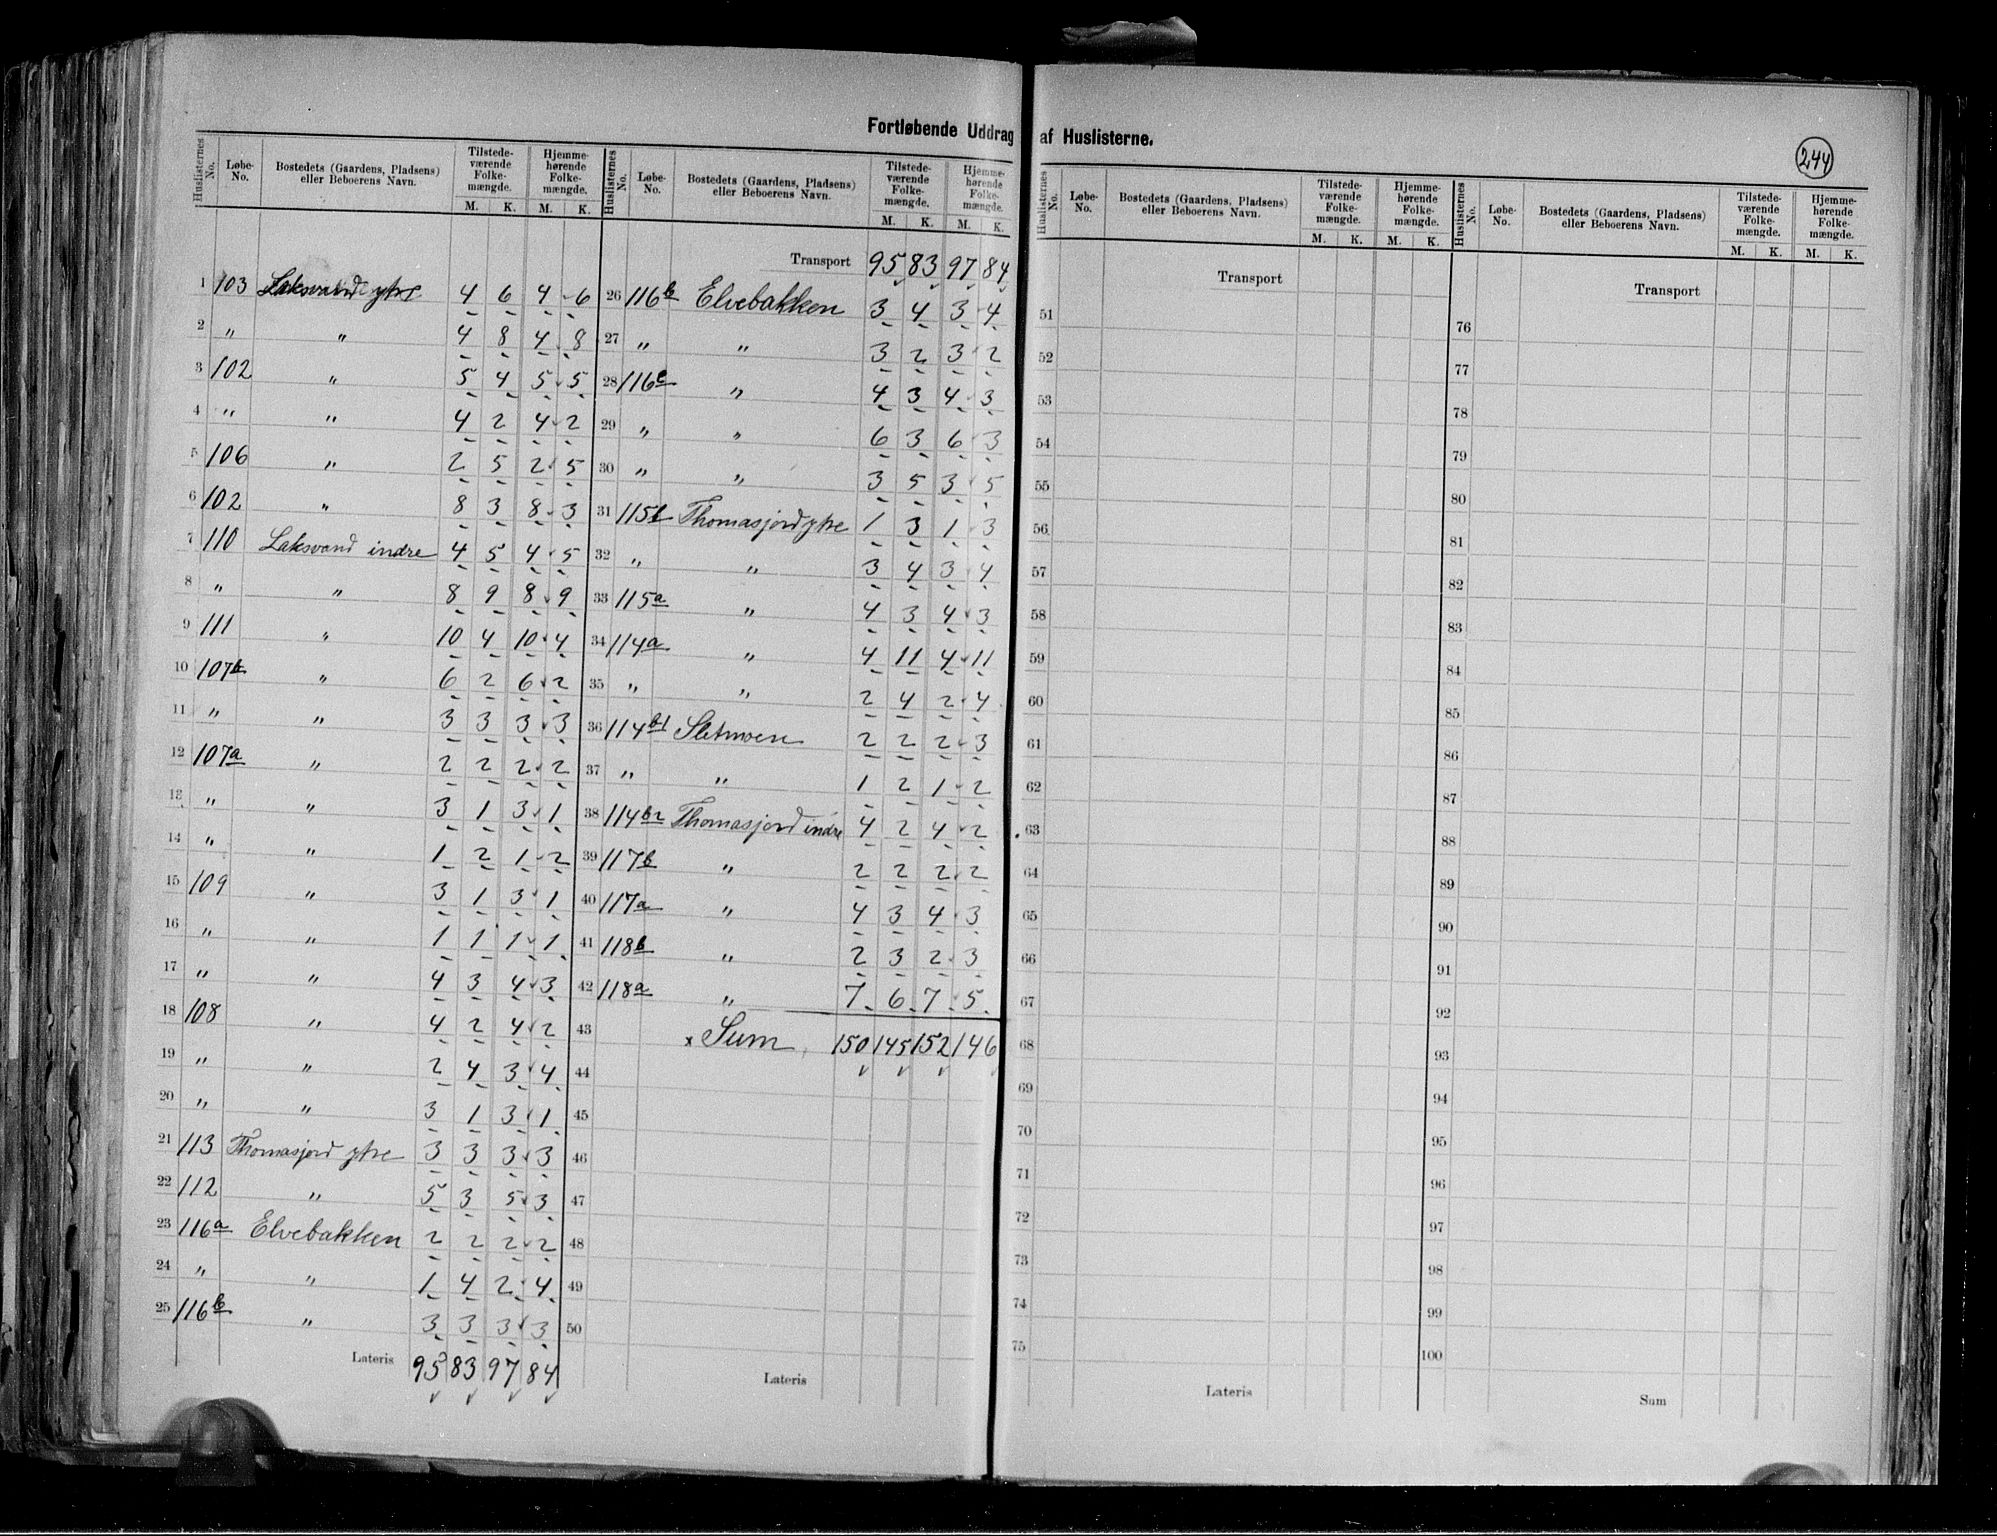 Fortløbende Uddrag af Huslisterne.
244
Huslisternes No. Løbe-No. Bostedets (Gaardens, Pladsens) eller Beboerens Navn. Tilstede-værende Folke-mængde. M. K. Hjemme-hørende Folke-mængde. M. K.
1 103 Laksvand ytre 4 6 4 6
2 " " 4 8 4 8
3 102 " 5 4 5 5
4 " " 4 2 4 2
5 106 " 2 5 2 5
6 102 " 8 3 8 3
7 110 Laksvand indre 4 5 4 5
8 " " 8 9 8 9
9 111 " 10 4 10 4
10 107b " 6 2 6 2
11 " " 3 3 3 3
12 107a " 2 2 2 2
13 " " 3 1 3 1
14 " " 1 2 1 2
15 109 " 3 1 3 1
16 " " 1 1 1 1
17 " " 4 3 4 3
18 108 " 4 2 4 2
19 " " 2 4 3 4
20 " " 3 1 3 1
21 113 Thomasjord ytre 3 3 3 3
22 112 " 5 3 5 3
23 116a Elvebakken 2 2 2 2
24 " " 1 4 2 4
25 116b " 3 3 3 3
Lateris 95 83 97 84
Huslisternes No. Løbe-No. Bostedets (Gaardens, Pladsens) eller Beboerens Navn. Tilstede-værende Folke-mængde. M. K. Hjemme-hørende Folke-mængde. M. K.
Transport 95 83 97 84
26 116b Elvebakken 3 4 3 4
27 " " 3 2 3 2
28 116c " 4 3 4 3
29 " " 6 3 6 3
30 " " 3 5 3 5
31 115b Thomasjord ytre 1 3 1 3
32 " " 3 4 3 4
33 115a " 4 3 4 3
34 114a " 4 11 4 11
35 " " 2 4 2 4
36 114b1 Sletmoen 2 2 2 3
37 " " 1 2 1 2
38 114b2 Thomasjord indre 4 2 4 2
39 117b " 2 2 2 2
40 117a " 4 3 4 3
41 118b " 2 3 2 3
42 118a " 7 6 7 5
43 x Sum 150 145 152 146
44
45
46
47
48
49
50
Lateris
Huslisternes No. Løbe-No. Bostedets (Gaardens, Pladsens) eller Beboerens Navn. Tilstede-værende Folke-mængde. M. K. Hjemme-hørende Folke-mængde. M. K.
Transport
51
52
53
54
55
56
57
58
59
60
61
62
63
64
65
66
67
68
69
70
71
72
73
74
75
Lateris
Huslisternes No. Løbe-No. Bostedets (Gaardens, Pladsens) eller Beboerens Navn. Tilstede-værende Folke-mængde. M. K. Hjemme-hørende Folke-mængde. M. K.
Transport
76
77
78
79
80
81
82
83
84
85
86
87
88
89
90
91
92
93
94
95
96
97
98
99
100
Sum